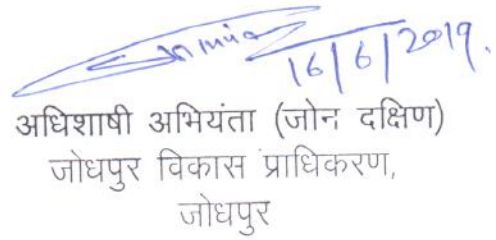 16/6/2019.
अधिशाषी अभियंता (जोन दक्षिण)
जोधपुर विकास प्राधिकरण,
जोधपुर